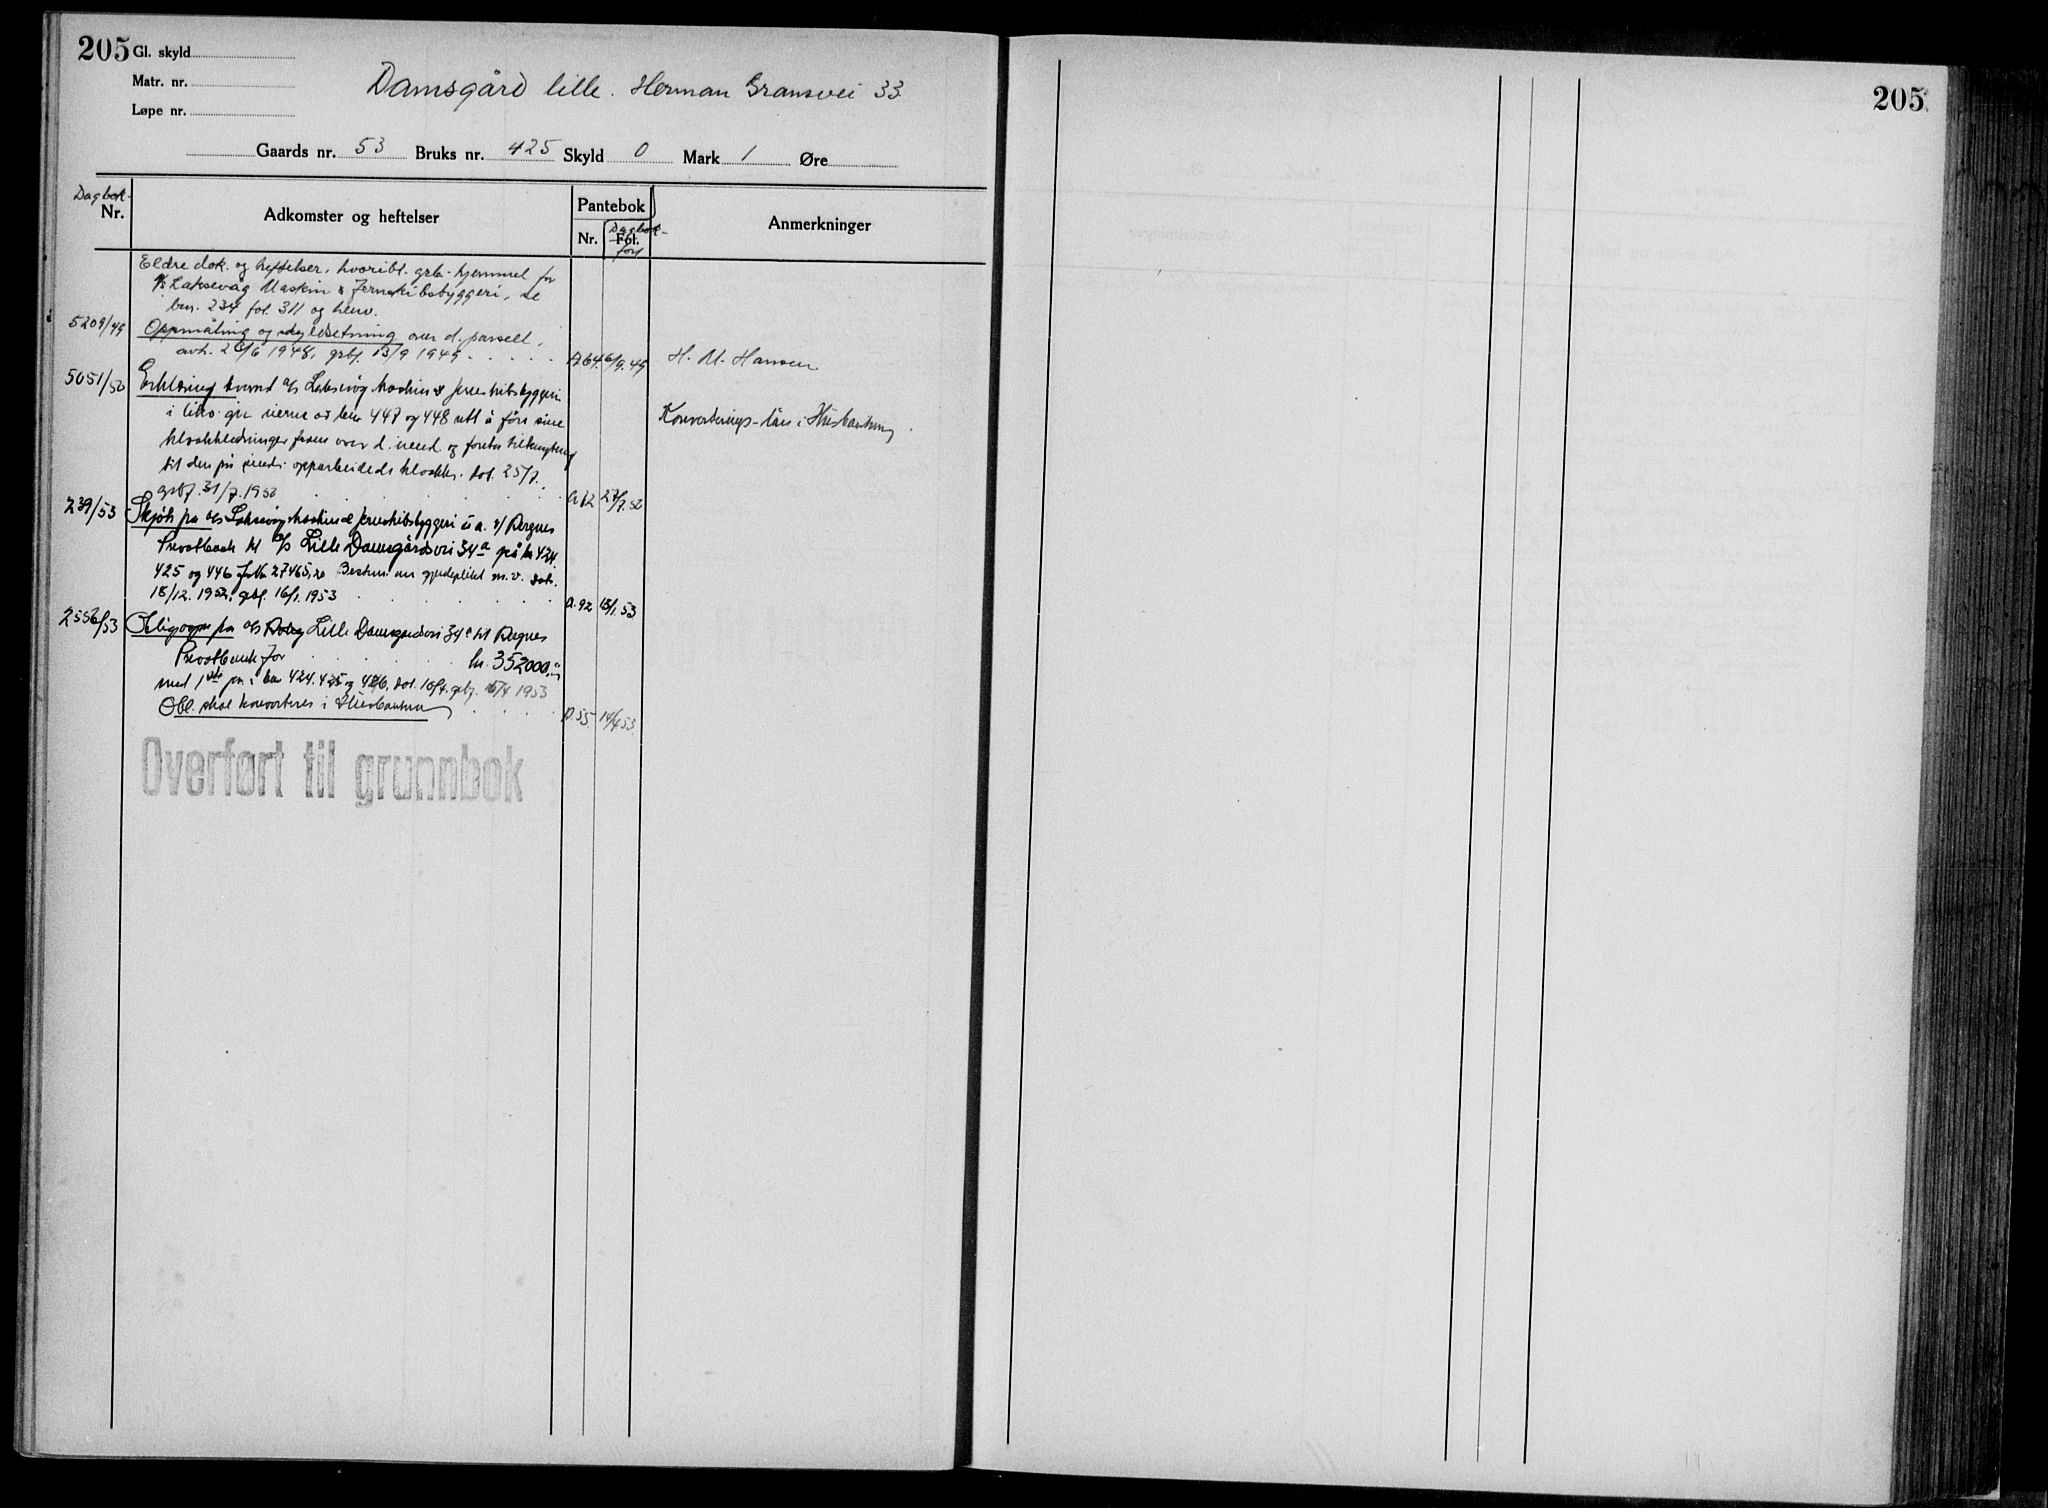 205 Gl. skyld
Matr. nr.
Løpe nr.
Damsgård lille. Herman Gransvei 33.
Gaards nr. 53 Bruks nr. 425 Skyld 0 Mark 1 Øre
Dagbok-
Nr.
Adkomster og heftelser
Pantebok
Nr.
Dagbok-
Fol.
ført
Anmerkninger
Eldre dok. og heftelser, hvoribl. grb. hjemmel for
A/S Laksevåg Maskin & Jernskibsbyggeri, se
bnr. 234 fol. 311 og henv.
5209/49 Oppmåling og skyldsetning over d. parsell,
avh. 28/6 1948, grbf. 13/9 1949 A 64. 6/9.49 H. M. Hansen
5051/50 Erklæring hvorved a/s Laksevåg Maskin & Jernskibsbyggeri
i likv. gir eierne av bnr 447 og 448 rett å føre sine
Konverterings-lån i Husbanken.
kloakkledninger frem over d. eiend. og foreta tilknytning
til den på eiend. opparbeidede kloakk. dat. 25/7.
grbf. 31/7.1950 A 12 27/7.50
239/53 Skjøte fra a/s Laksevåg Maskin & Jernskibsbyggeri u.a. v/ Bergens
Privatbank til A/S Lille Damsgårdsvei 34a på bnr 424
425 og 446 for kr 27465,20 Bestem. om gjerdeplikt m.v. dat.
18/12. 1952, grbf. 16/1. 1953 A. 92 15/1 53
2556/53 Obligasjon fra a/s Lille Damsgårdsvei 34a til Bergens
Privatbank for kr. 352000,-
med 1ste pr. i bnr 424. 425 og 426, dat. 10/4. grbf. 15/4 1953
Obl. skal konverteres i Husbanken D. 55 14/4 53.
Overført til grunnbok
205